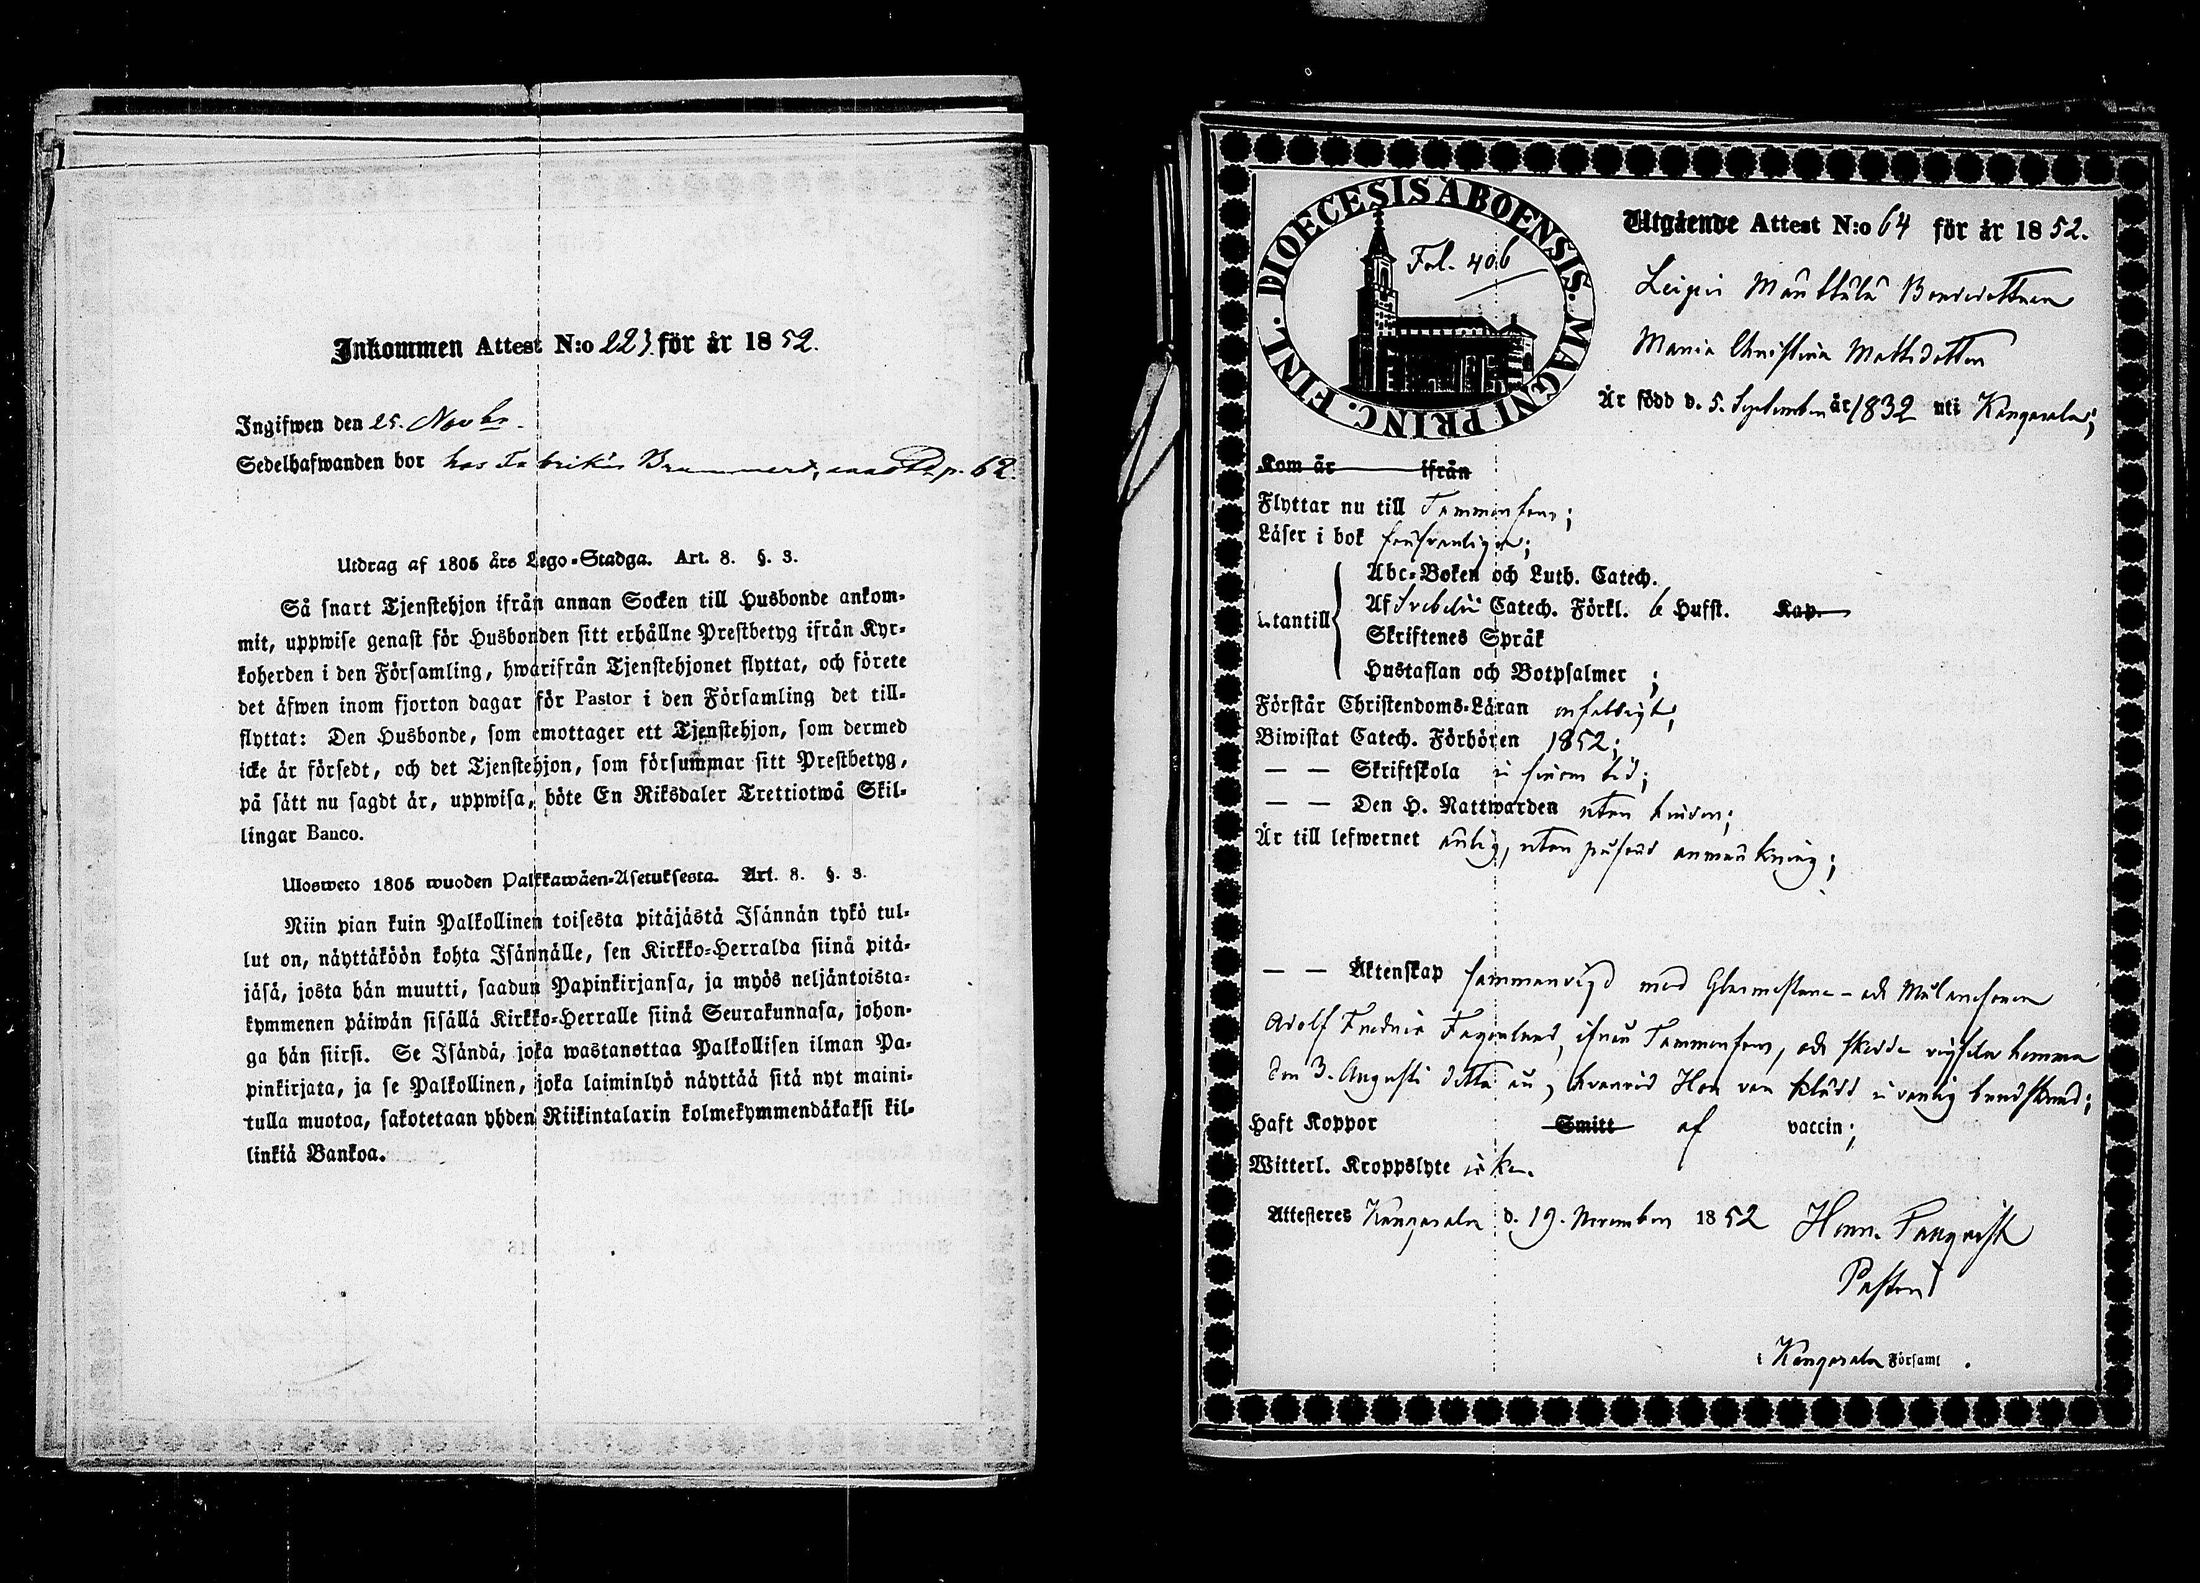 Inkommen Attest N:o 223. för år 1852.
Ingifwen den 25. Novbr.
Sedelhafwanden bor hos Fabrikör p. 62.
Utdrag af 1805 års Lego-Stadga. Art. 8. §. 3.
Så snart Tjenstehjon ifrån annan Socken till Husbonde ankom-
mit, uppwise genast för Husbonden sitt erhållne Prestbetyg ifrån Kyr-
koherden i den Församling, hwarifrån Tjenstehjonet flyttat, och förete
det äfwen inom fjorton dagar för Pastor i den Församling det till-
flyttat: Den Husbonde, som emottager ett Tjenstehjon, som dermed
icke är försedt, och det Tjenstehjon, som försummar sitt Prestbetyg,
på sätt nu sagdt är, uppwisa, böte En Riksdaler Trettiotwå Skil-
lingar Banco.
Ulosweto 1805 wuoden Palkkawäen-Asetuksesta. Art. 8. §. 3.
Niin pian kuin Palkollinen toisesta pitäjästä Isännän tykö tul-
lut on, näyttäköön kohta Isännälle, sen Kirkko-Herralda siinä pitä-
jäsä, josta hän muutti, saadun Papinkirjansa, ja myös neljäntoista-
kymmenen päiwän sisällä Kirkko-Herralle siinä Seurakunnasa, johon-
ga hän siirsi. Se Isändä, joka wastanottaa Palkollisen ilman Pa-
pinkirjata, ja se Palkollinen, joka laiminlyö näyttää sitä nyt maini-
tulla muotoa, sakotetaan yhden Riikintalarin kolmekymmendäkaksi kil-
linkiä Bankoa.
DIOECESIS ÅBOENSIS. MAGNI PRINC. FINL.
Fol. 406
Utgående Attest N:o 64 för år 1852.
Bondedottren
Maria Christina Mattsdotter
Är född d. 5. September år 1832 uti Kangasala;
Kom år ifrån
Flyttar nu till Tammerfors;
Läser i bok försvarligen;
Utantill
Abc-Boken och Luth. Catech.
Af Svebelii Catech. Förkl. 6 Hufst. Kap.
Skriftenes Språk
Hustaflan och Botpsalmer ;
Förstår Christendoms-Läran enfaldigt;
Biwistat Catech. Förhören 1852;
— — Skriftskola i sinom tid;
— — Den H. Nattwarden utan hinder;
Är till lefwernet ärlig, utan prestens anmärkning;
— — Äktenskap sammanvigd med Glasmästare- och Målaresonen
Adolf Fredric Fagerlund, ifrån Tammerfors, och skedde vigseln hemma
den 3. Augusti detta år, hvarvid Hon var klädd i vanlig brudskrud;
Haft Koppor Smitt af vaccin;
Witterl. Kroppslyte icke.
Attesteres Kangasala d. 19. November 1852 Henr.
Pastor
i Kangasala Församl.